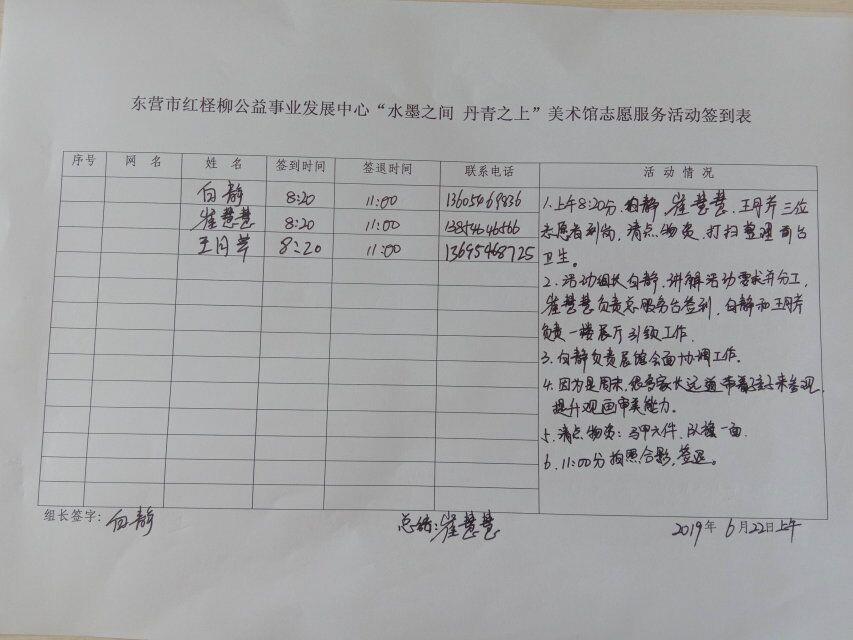 东营市红柽柳公益事业发展中心“水墨之间 丹青之上”美术馆志愿服务活动签到表
序号 网 名 姓 名 签到时间 签退时间 联系电话 活 动 情 况
白静 8:20 11:00 13605469836
崔慧慧 8:20 11:00 13854646566
王月芹 8:20 11:00 13695468725
1.上午8:20分,白静 崔慧慧、王月芹三位
志愿者到岗,清点物资,打扫整理前台
卫生。
2、活动组长白静,讲解活动需求并分工,
崔慧慧负责总服务台签到,白静和王月芹
负责一楼展厅引领工作.
3、白静负责展馆全面协调工作.
4、因为是周末,很多家长远道带着孩子来参观,
提升观画审美能力。
5、清点物资:马甲六件、队旗一面.
6、11:00分拍照合影,签退。
组长签字:白静 总结:崔慧慧 2019年 6月22日上午